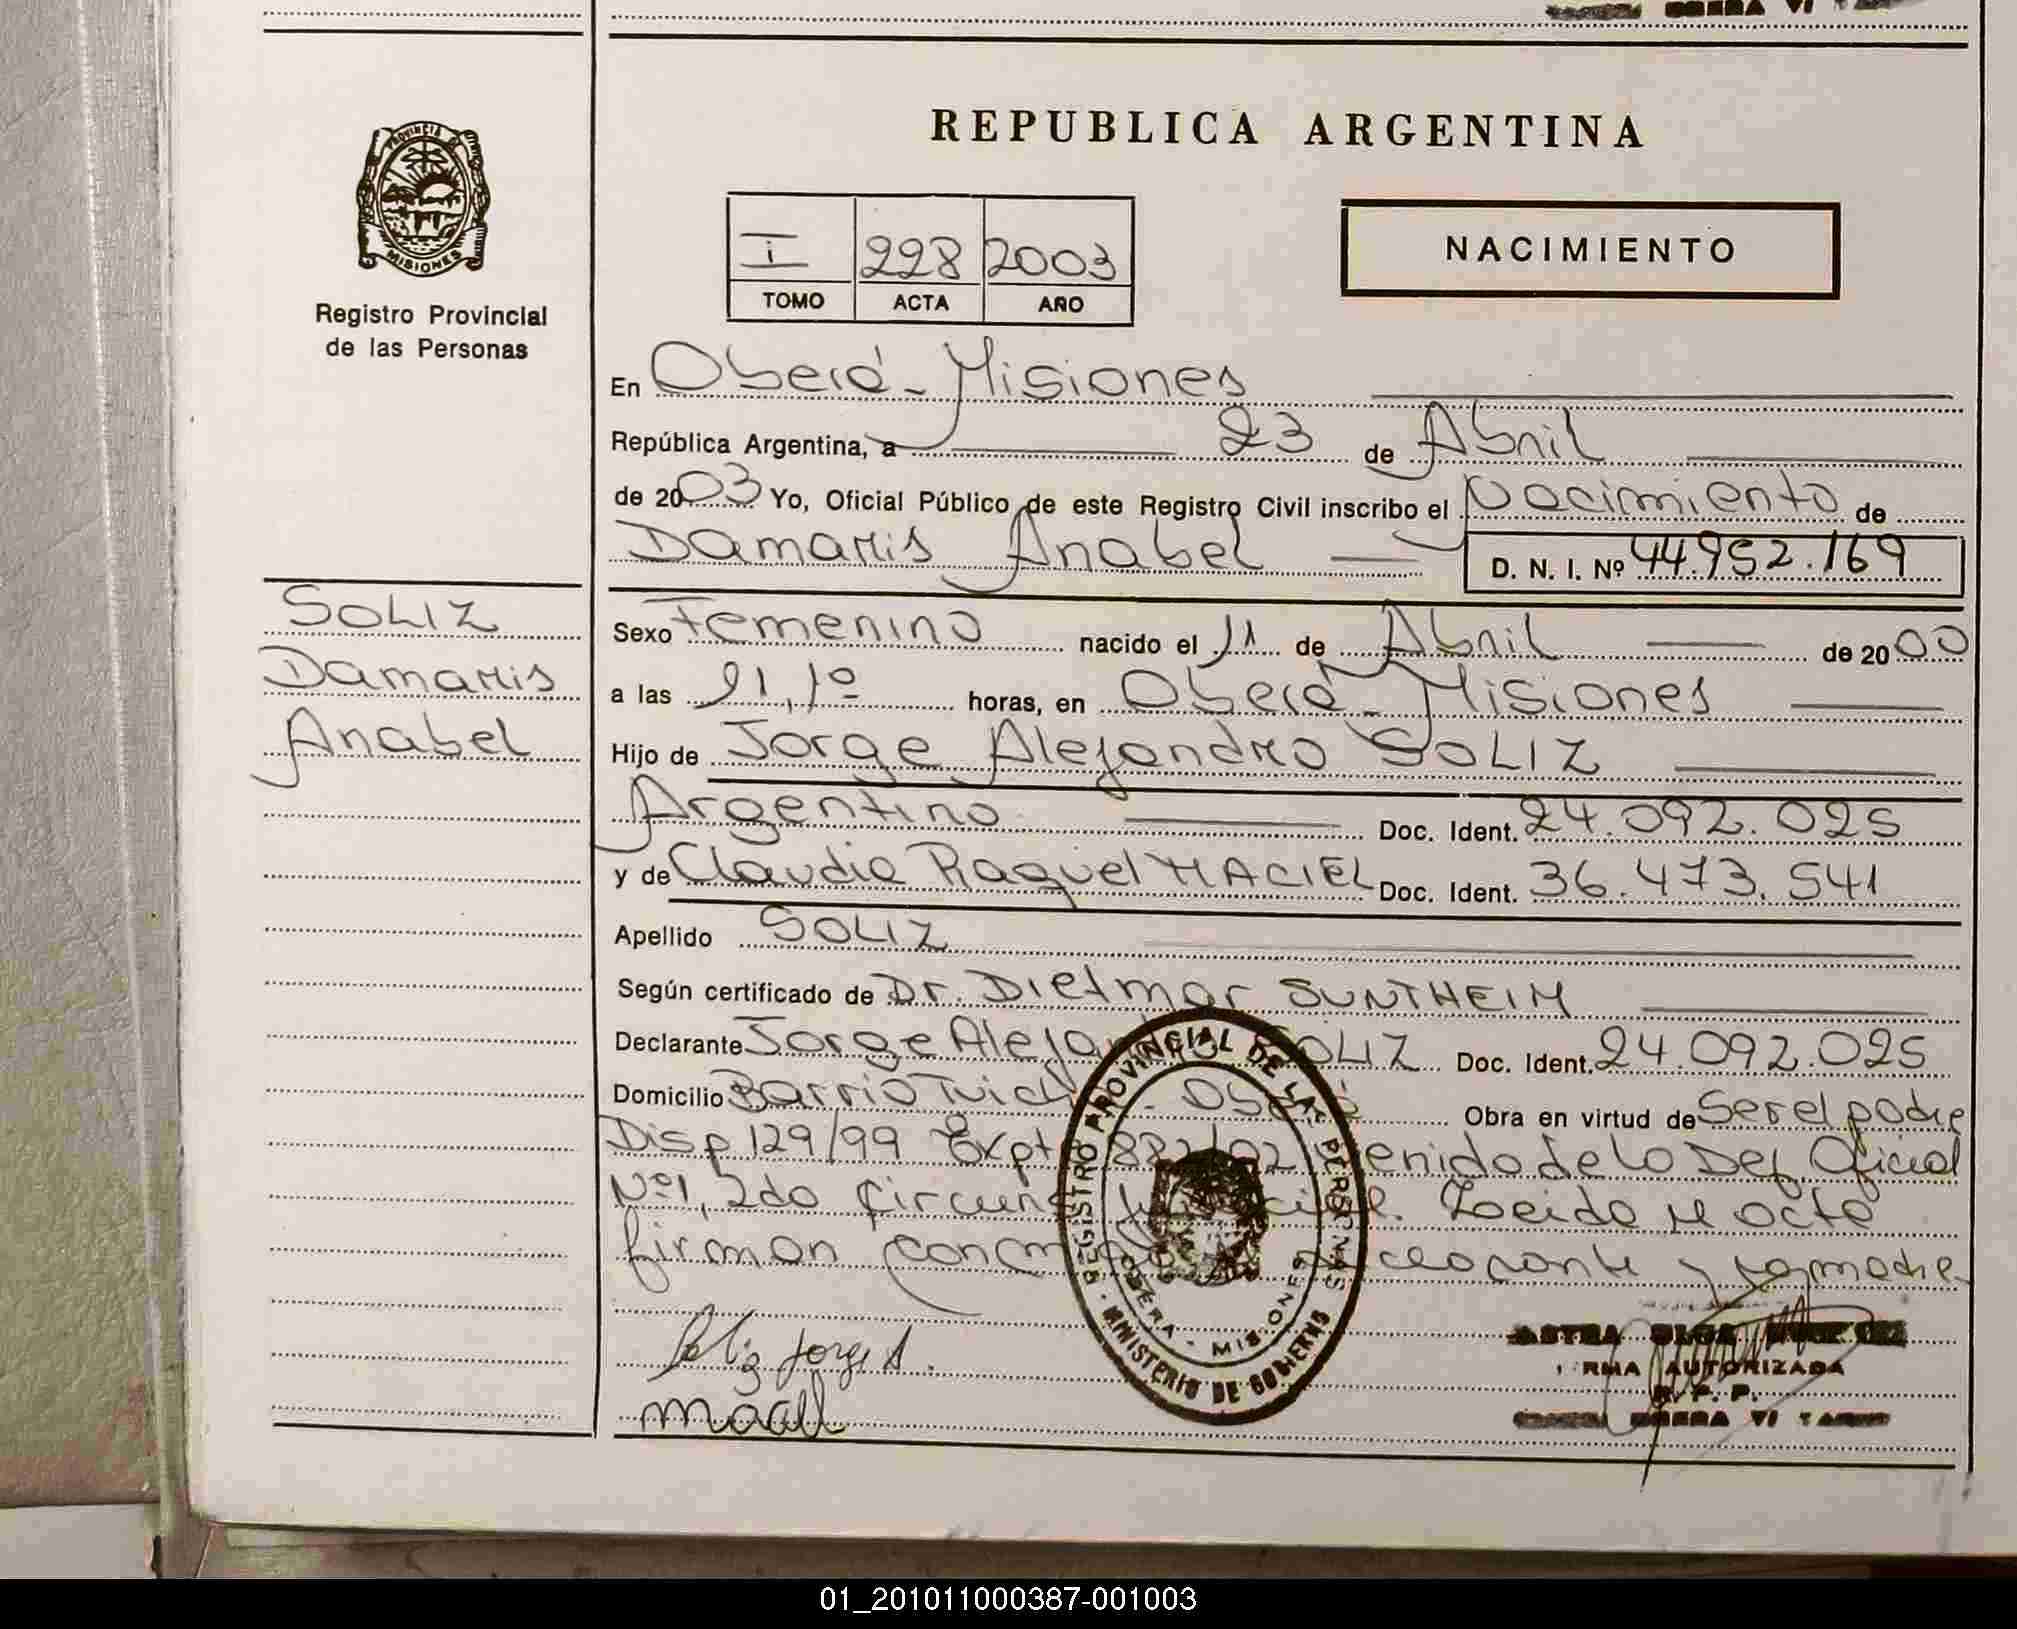 PROVINCIA DE
MISIONES
Registro Provincial
de las Personas
REPUBLICA ARGENTINA
I 228 2003
TOMO ACTA AÑO
NACIMIENTO
En Oberá - Misiones
República Argentina, a 23 de Abril
de 2003 Yo, Oficial Público de este Registro Civil inscribo el Nacimiento de
Damaris Anabel D. N. I. Nº 44.952.169
SOLIZ
Damaris
Anabel
Sexo Femenino nacido el 11 de Abril de 2000
a las 21,1º horas, en Oberá - Misiones
Hijo de Jorge Alejandro SOLIZ
Argentino Doc. Ident. 24.092.025
y de Claudia Raquel MACIEL Doc. Ident. 36.473.541
Apellido SOLIZ
Según certificado de Dr. Dietmar SUNTHEIM
Declarante Jorge Alejandro SOLIZ Doc. Ident. 24.092.025
Domicilio Barrio Oberá Obra en virtud de Ser el padre
Disp 129/99 Expte de la Def Oficial
Nº1, 2da Circuns Judicial. Leida el acta
firman conmigo declarante y la madre
REGISTRO PROVINCIAL DE LAS PERSONAS
OBERA - MISIONES
MINISTERIO DE GOBIERNO
Soliz Jorge A.
FIRMA AUTORIZADA
R. P. P.
OBERA
01_201011000387-001003